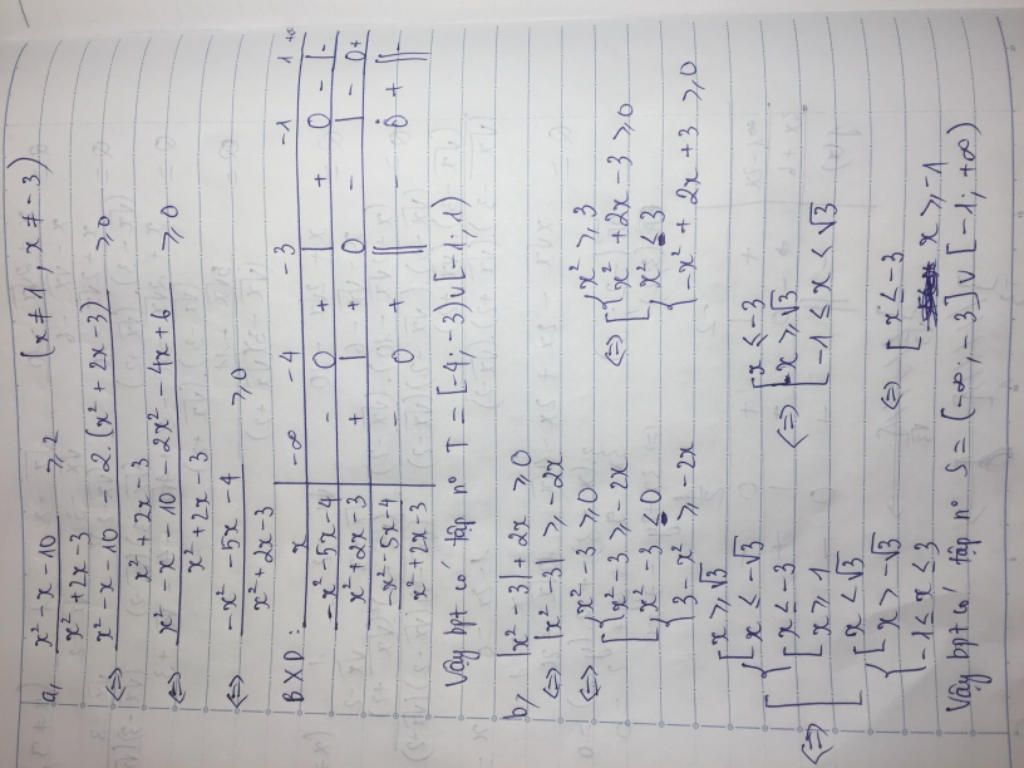 a, x² - x - 10 / x² + 2x - 3 ≥ 2 (x ≠ 1, x ≠ -3)
<=> x² - x - 10 - 2.(x² + 2x - 3) / x² + 2x - 3 ≥ 0
<=> x² - x - 10 - 2x² - 4x + 6 / x² + 2x - 3 ≥ 0
<=> -x² - 5x - 4 / x² + 2x - 3 ≥ 0
BXD: x | -∞ -4 -3 -1 1 +∞
-x² - 5x - 4 | - 0 + | + 0 - | -
x² + 2x - 3 | + | + 0 - | - 0 +
-x² - 5x - 4 / x² + 2x - 3 | - 0 + || - 0 + || -
Vậy bpt có tập nº T = [-4; -3) ∪ [-1; 1)
b, |x² - 3| + 2x ≥ 0
<=> |x² - 3| ≥ -2x
<=> [ { x² - 3 ≥ 0
x² - 3 ≥ -2x
{ x² - 3 ≤ 0
3 - x² ≥ -2x
<=> [ { x² ≥ 3
x² + 2x - 3 ≥ 0
{ x² ≤ 3
-x² + 2x + 3 ≥ 0
<=> [ { [ x ≥ √3
x ≤ -√3
[ x ≤ -3
x ≥ 1
{ [ x < √3
x > -√3
-1 ≤ x ≤ 3
<=> [ [ x ≤ -3
x ≥ √3
-1 ≤ x < √3
<=> [ x ≤ -3
x ≥ -1
Vậy bpt có tập nº S = (-∞; -3] ∪ [-1; +∞)